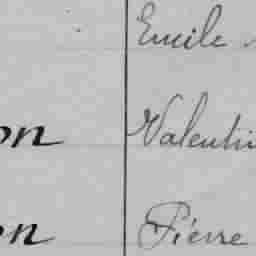 Emile
on Valentin
on Pierre